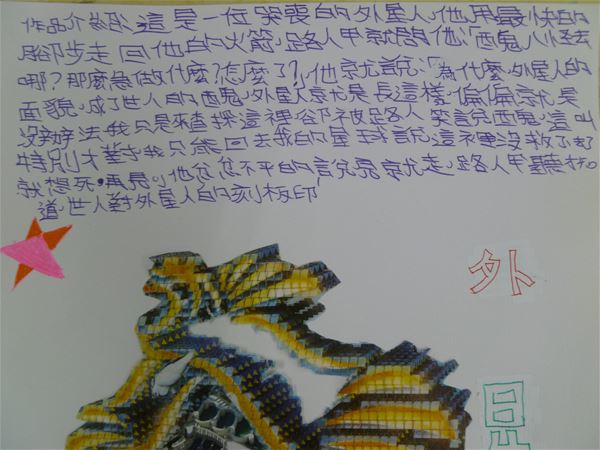 作品介紹：這是一位哭喪的外星人，他用最快的
腳步走回他的火箭，路人甲就問他：「西鬼，八小去
哪？那麼急做什麼？怎麼了？」他就說：「為什麼，外星人的
面貌，成了世人的西鬼，外星人就是長這樣，偏偏就是
沒辦法，我只是來查探這裡，卻被路人笑說西鬼，這叫
特別才對，我只能回去我的星球說，這裡沒救了都
就想死，再見」他忿忿不平的說完就走，路人甲聽
道，世人對外星人的刻板印
外
星